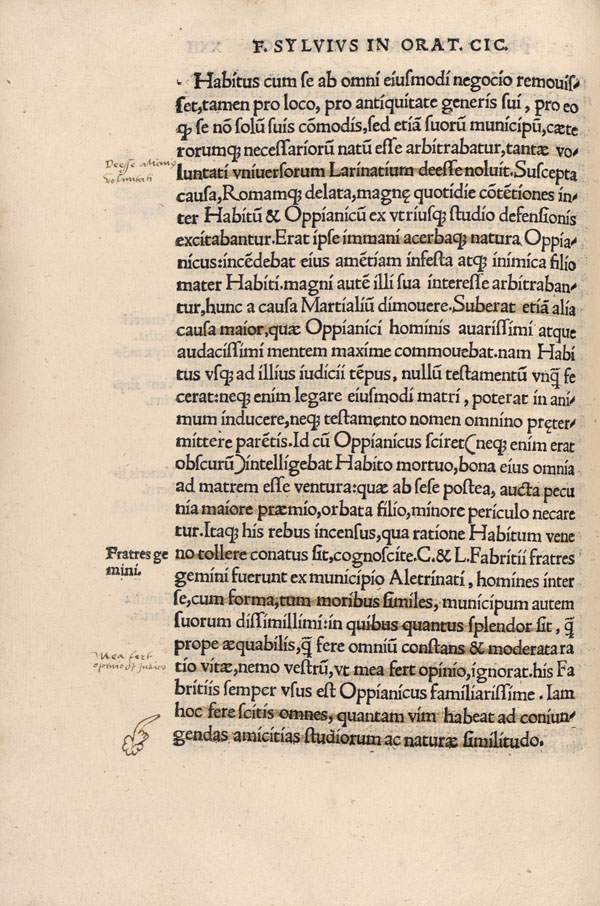 F. SYLVIVS IN ORAT. CIC.
Habitus cum se ab omni eiusmodi negocio remouis-
set,tamen pro loco, pro antiquitate generis sui, pro eo
q̃ se nõ solũ suis cõmodis,sed etiã suorũ municipũ,cæte
rorumq; necessariorũ natũ esse arbitrabatur,tantæ vo-
Deesse alicuius
voluntati
luntati vniuersorum Larinatium deesse noluit.Suscepta
causa,Romamq; delata,magnę quotidie cõtẽtiones in-
ter Habitũ & Oppianicũ ex vtriusq; studio defensionis
excitabantur.Erat ipse immani acerbaq; natura Oppia-
nicus:incẽdebat eius amẽtiam infesta atq; inimica filio
mater Habiti.magni autẽ illi sua interesse arbitraban-
tur,hunc a causa Martialiũ dimouere.Suberat etiã alia
causa maior,quæ Oppianici hominis auarissimi atque
audacissimi mentem maxime commouebat.nam Habi
tus vsq; ad illius iudicii tẽpus, nullũ testamentũ vnq̃ fe
cerat:neq; enim legare eiusmodi matri, poterat in ani-
mum inducere,neq; testamento nomen omnino pręter-
mittere parẽtis.Id cũ Oppianicus sciret(neq; enim erat
obscurũ)intelligebat Habito mortuo,bona eius omnia
ad matrem esse ventura:quæ ab sese postea, aucta pecu
nia maiore præmio,orbata filio,minore periculo necare
tur.Itaq; his rebus incensus,qua ratione Habitum vene
Fratres ge
mini.
no tollere conatus sit,cognoscite.C.& L.Fabritii fratres
gemini fuerunt ex municipio Aletrinati, homines inter
se,cum forma,tum moribus similes, municipum autem
suorum dissimillimi:in quibus quantus splendor sit, q̃
prope æquabilis,q̃ fere omniũ constans & moderata ra
Mea fert
opinio
tio vitæ,nemo vestrũ,vt mea fert opinio,ignorat.his Fa
britiis semper vsus est Oppianicus familiarissime . Iam
hoc fere scitis omnes, quantam vim habeat ad coniun-
gendas amicitias studiorum ac naturæ similitudo.